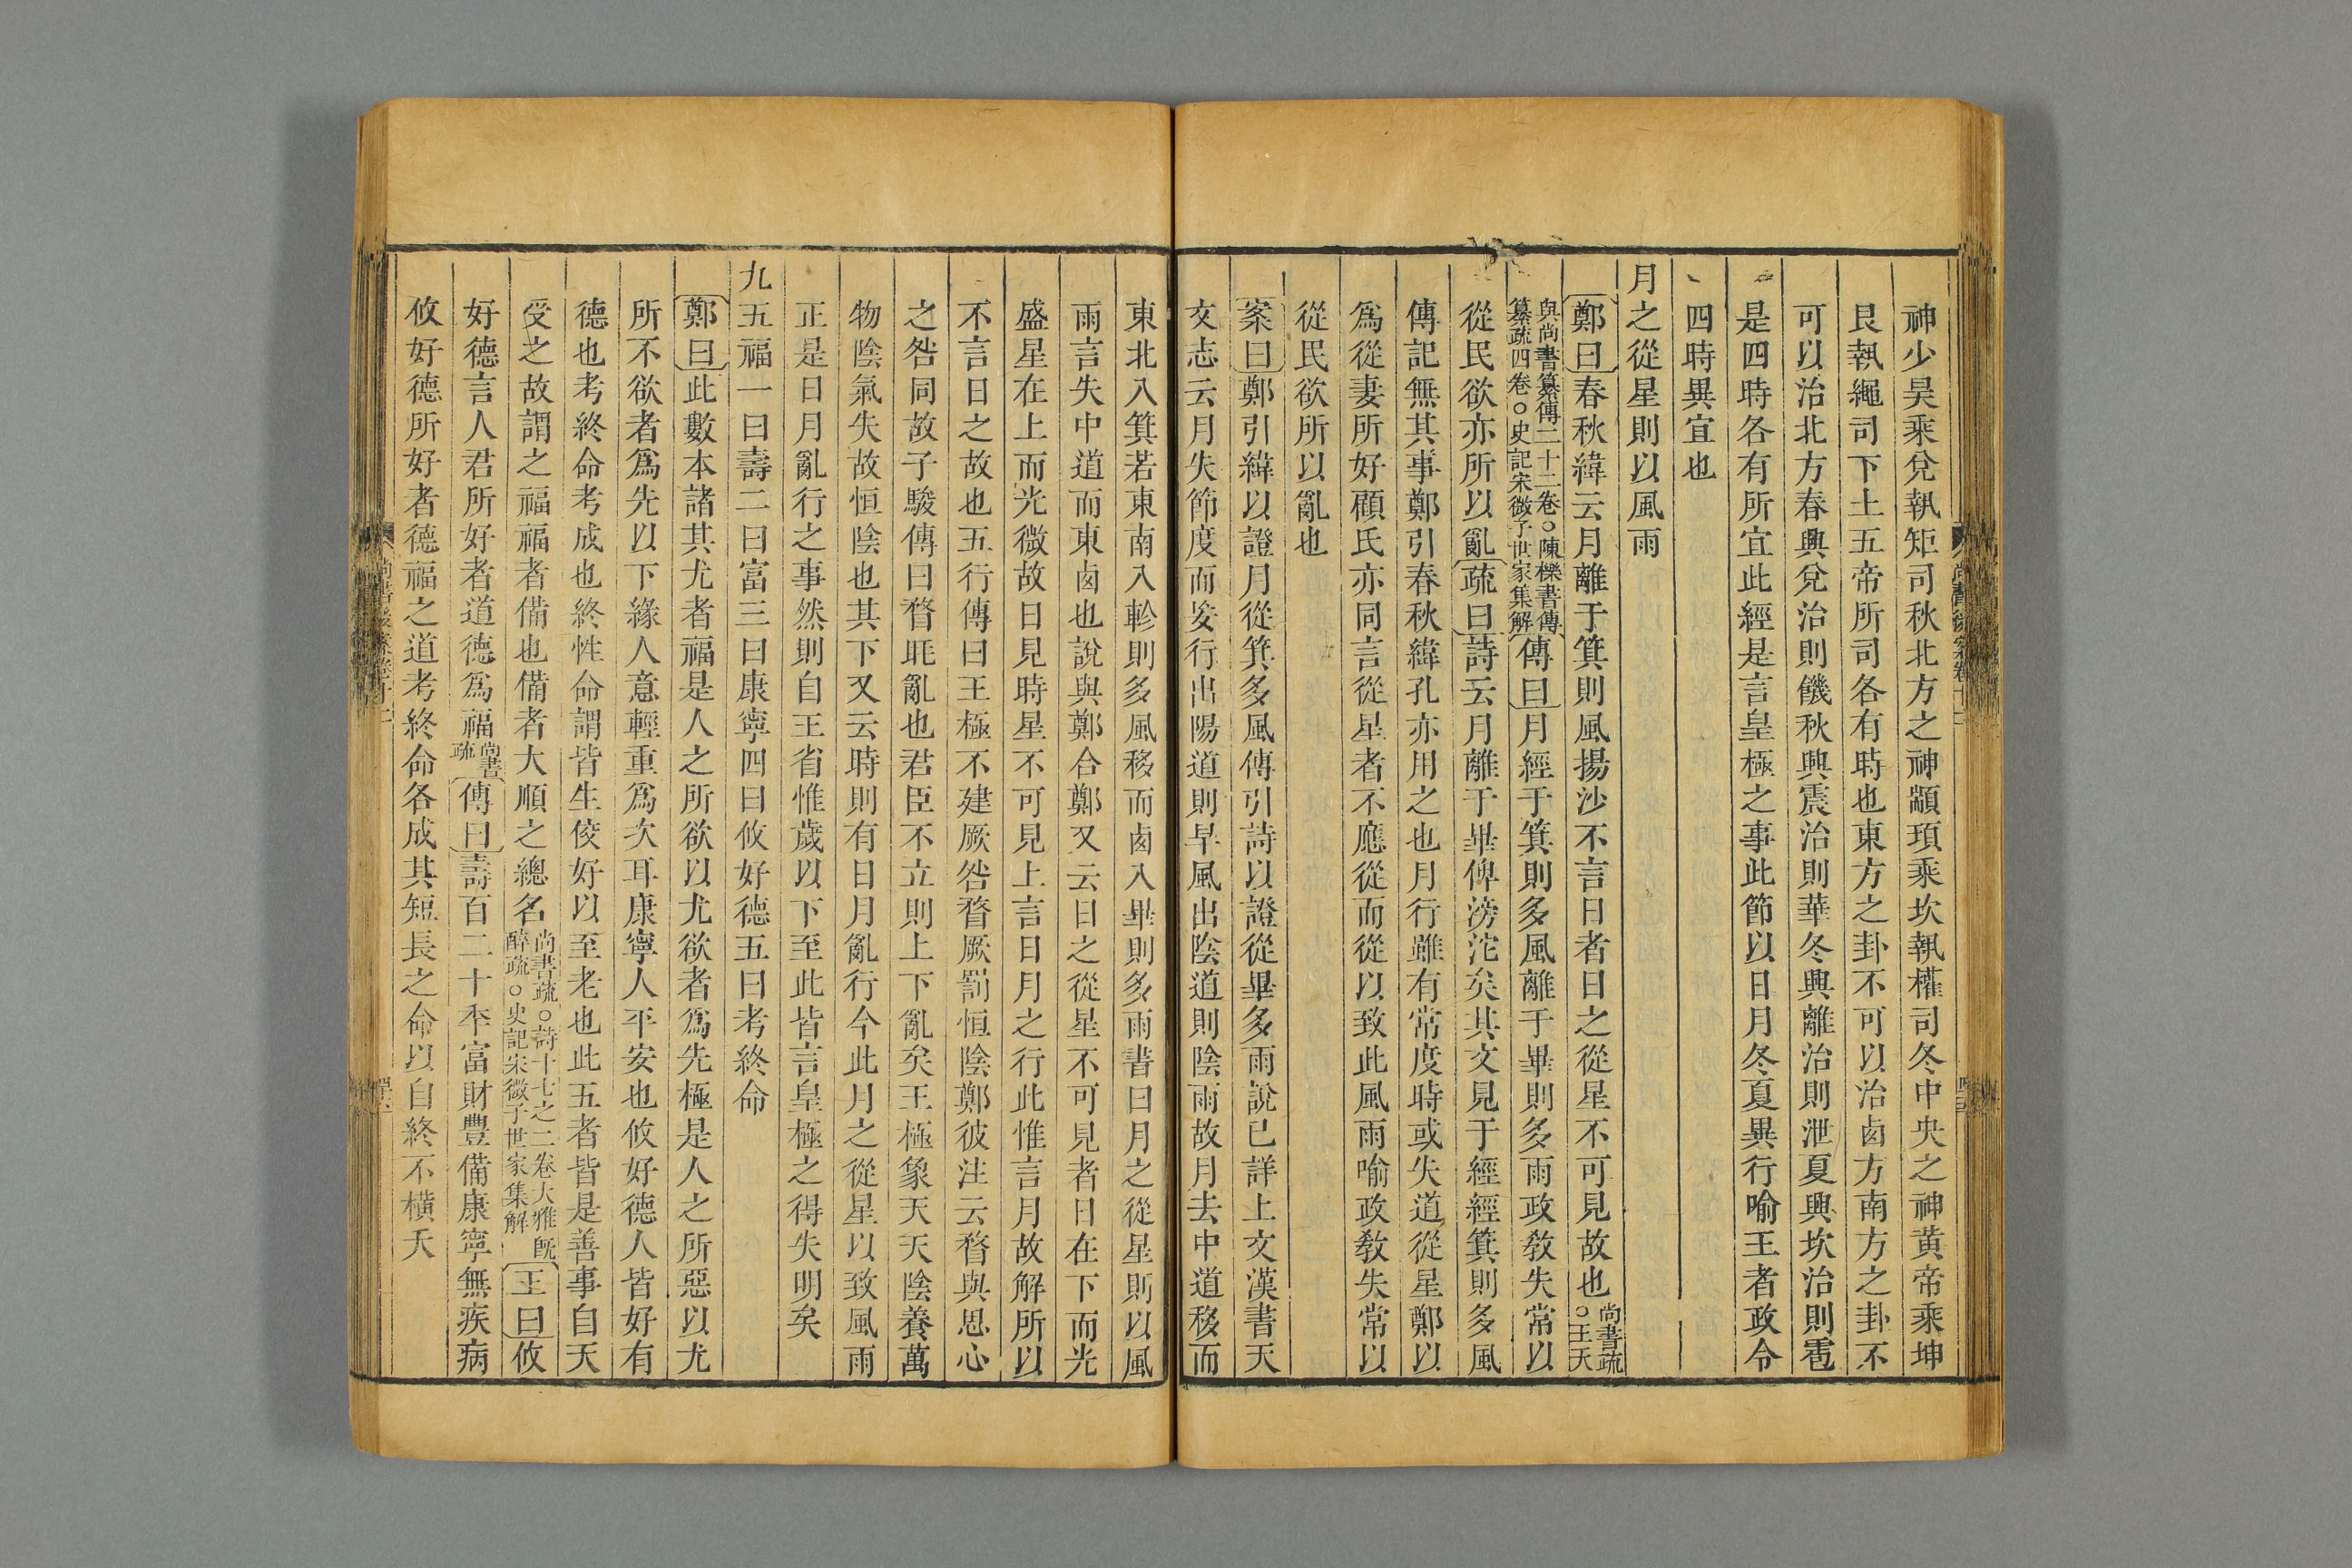 神少昊乘兌執矩司秋北方之神顓頊乘坎執權司冬中央之神黄帝乘坤
艮執繩司下土五帝所司各有時也東方之卦不可以治卤方南方之卦不
可以治北方春興兌治則饑秋興震治則華冬興離治則泄夏興坎治則雹
是四時各有所宜此經是言皇極之事此節以日月冬夏異行喻王者政令
四時異宜也
月之從星則以風雨
鄭曰春秋緯云月離于箕則風揚沙不言日者日之從星不可見故也尚書疏○王天
與尚書纂傳二十二卷○陳櫟書傳纂疏四卷○史記宋微子世家集解傳曰月經于箕則多風離于畢則多雨政教失常以
從民欲亦所以亂疏曰詩云月離于畢俾滂沱矣其文見于經經箕則多風
傳記無其事鄭引春秋緯孔亦用之也月行雖有常度時或失道從星鄭以
爲從妻所好顧氏亦同言從星者不應從而從以致此風雨喻政教失常以
從民欲所以亂也
案曰鄭引緯以證月從箕多風傳引詩以證從畢多雨說已詳上文漢書天
文志云月失節度而妄行出陽道則旱風出陰道則陰雨故月去中道移而
東北入箕若東南入軫則多風移而卤入畢則多雨書曰月之從星則以風
雨言失中道而東卤也說與鄭合鄭又云日之從星不可見者日在下而光
盛星在上而光微故日見時星不可見上言日月之行此惟言月故解所以
不言日之故也五行傳曰王極不建厥咎瞀厥罰恒陰鄭彼注云瞀與思心
之咎同故子駿傳曰瞀眊亂也君臣不立則上下亂矣王極象天天陰養萬
物陰氣失故恒陰也其下又云時則有日月亂行今此月之從星以致風雨
正是日月亂行之事然則自王省惟歲以下至此皆言皇極之得失明矣
九五福一曰壽二曰富三曰康寧四曰攸好德五曰考終命
鄭曰此數本諸其尤者福是人之所欲以尤欲者爲先極是人之所惡以尤
所不欲者爲先以下緣人意輕重爲次耳康寧人平安也攸好德人皆好有
德也考終命考成也終性命謂皆生佼好以至老也此五者皆是善事自天
受之故謂之福福者備也備者大順之總名尚書疏○詩十七之二卷大雅旣醉疏○史記宋微子世家集解王曰攸
好德言人君所好者道德爲福尚書疏傳曰壽百二十秊富財豐備康寧無疾病
攸好德所好者德福之道考終命各成其短長之命以自終不橫夭